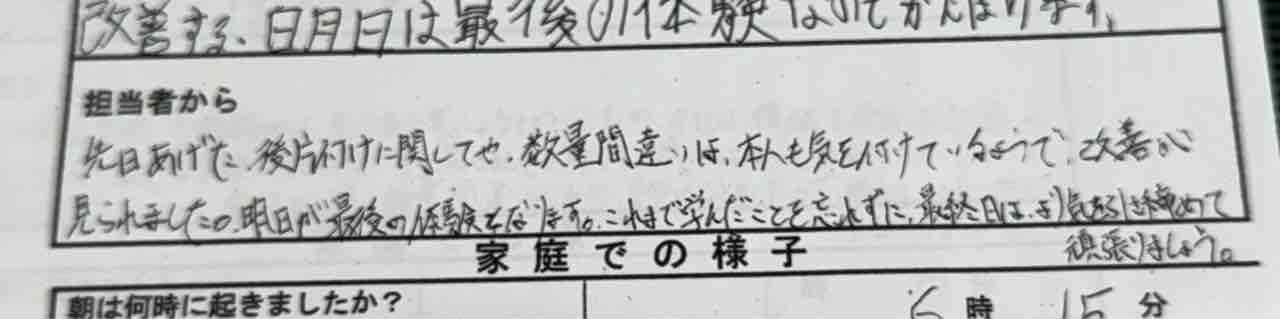 改善する、明日は最後の体験なのでがんばります。
担当者から
先日あげた、後片付けに関してや、数量間違いは、本人も気を付けているようで、改善が
見られました。明日が最後の体験となります。これまで学んだことを忘れずに、最終日は、より気を引き締めて
頑張りましょう。
家庭での様子
朝は何時に起きましたか? 6 時 15 分